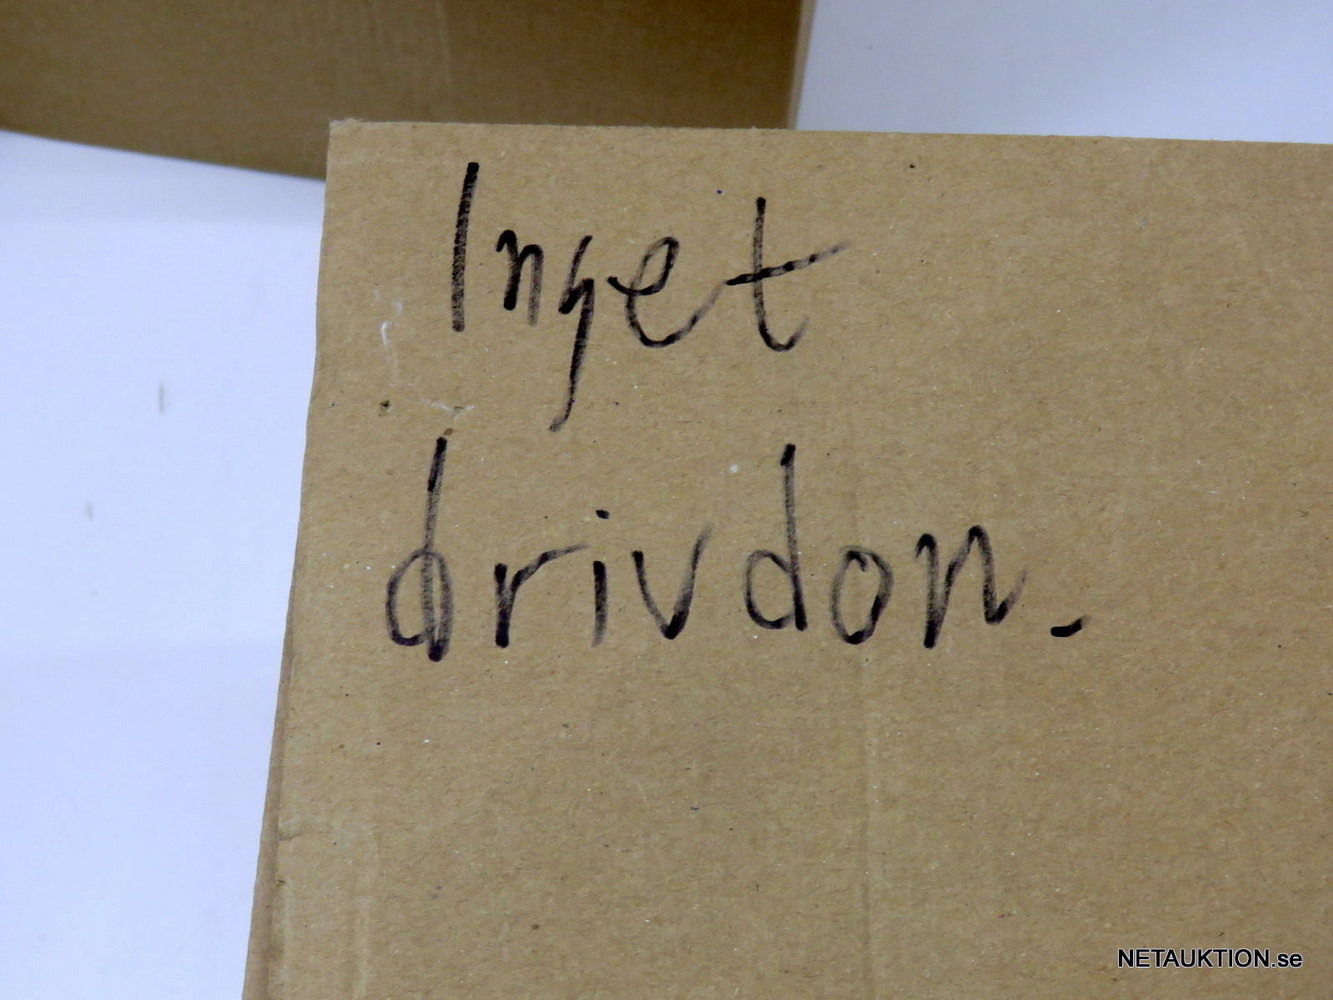 Inget
drivdon.
NETAUKTION.se